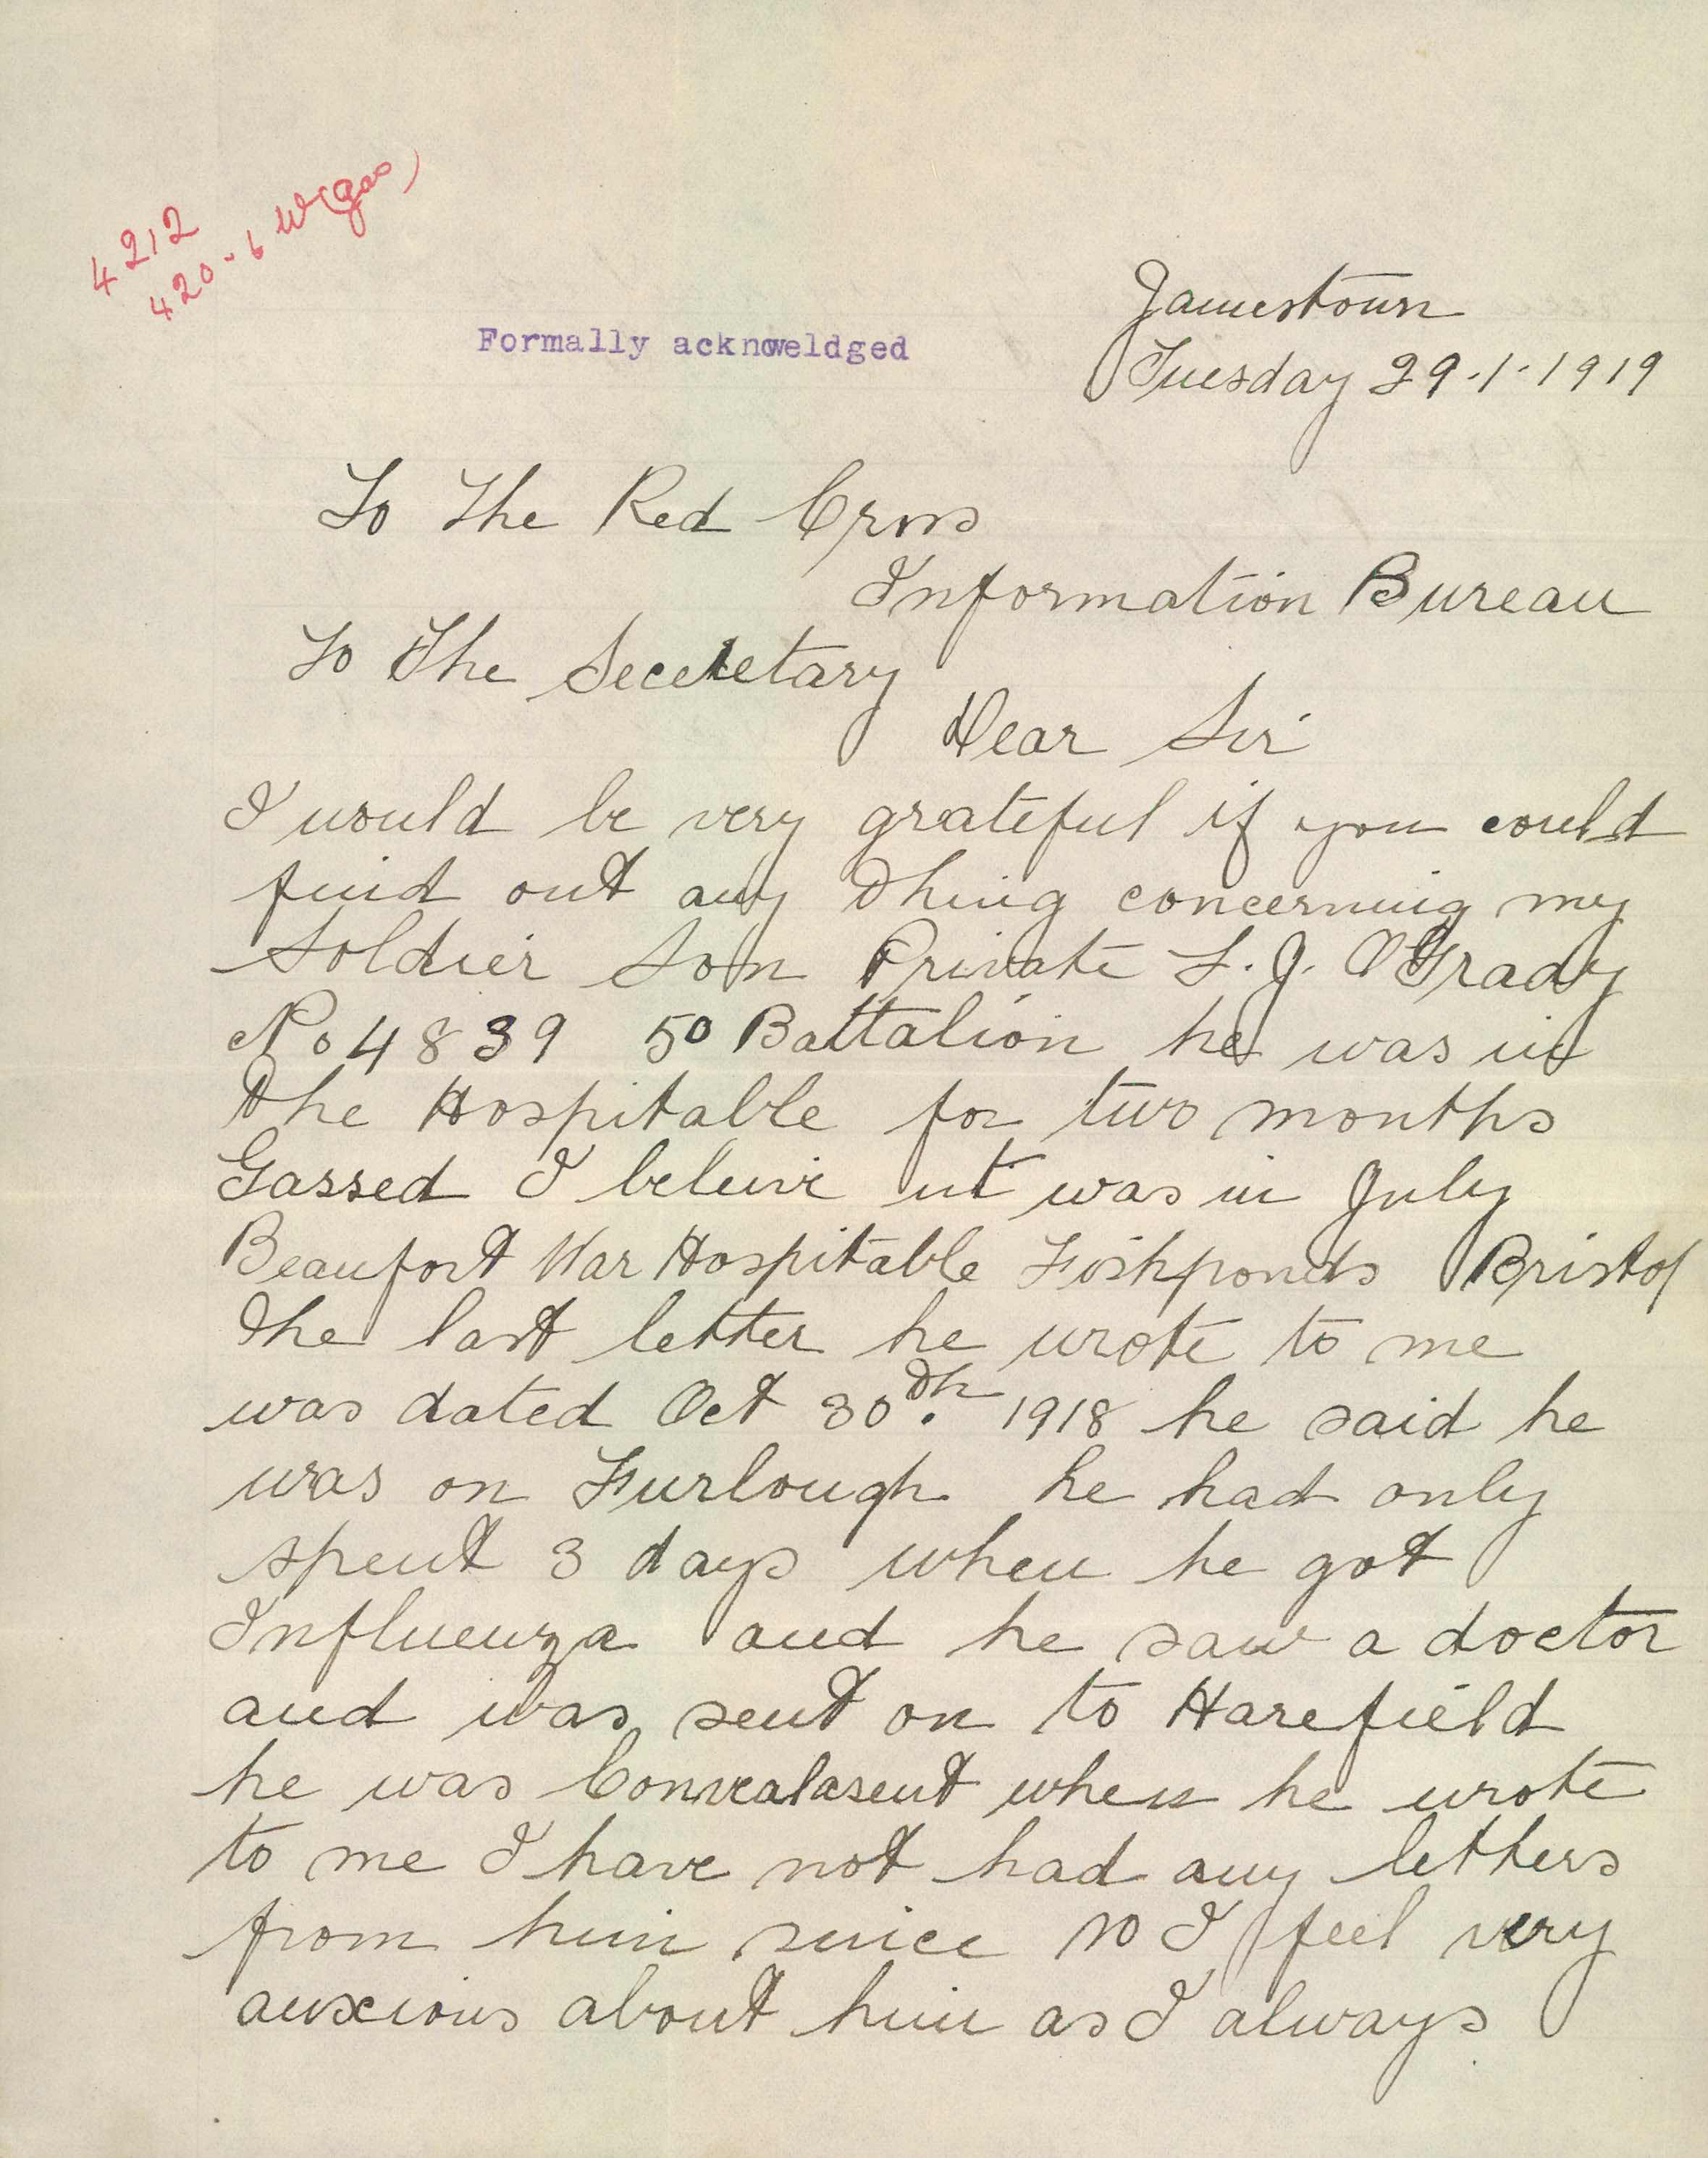 4212
420-6 W(gas)
Formally acknoweldged
Jamestown
Tuesday 29.1.1919
To The Red Cross
Information Bureau
To The Seceretary
Dear Sir
I would be very grateful if you could
find out any thing concerning my
Soldier Son Private L. J. O'Grady
No 4839 50 Battalion he was in
the Hospitable for two months
Gassed I beleive it was in July
Beaufort War Hospitable Fishponds Bristol
The last letter he wrote to me
was dated Oct 30th. 1918 he said he
was on Furlough he had only
spent 3 days when he got
Influenza and he saw a doctor
and was sent on to Harefield
he was Convalasent when he wrote
to me I have not had any letters
from him since so I feel very
anxious about him as I always